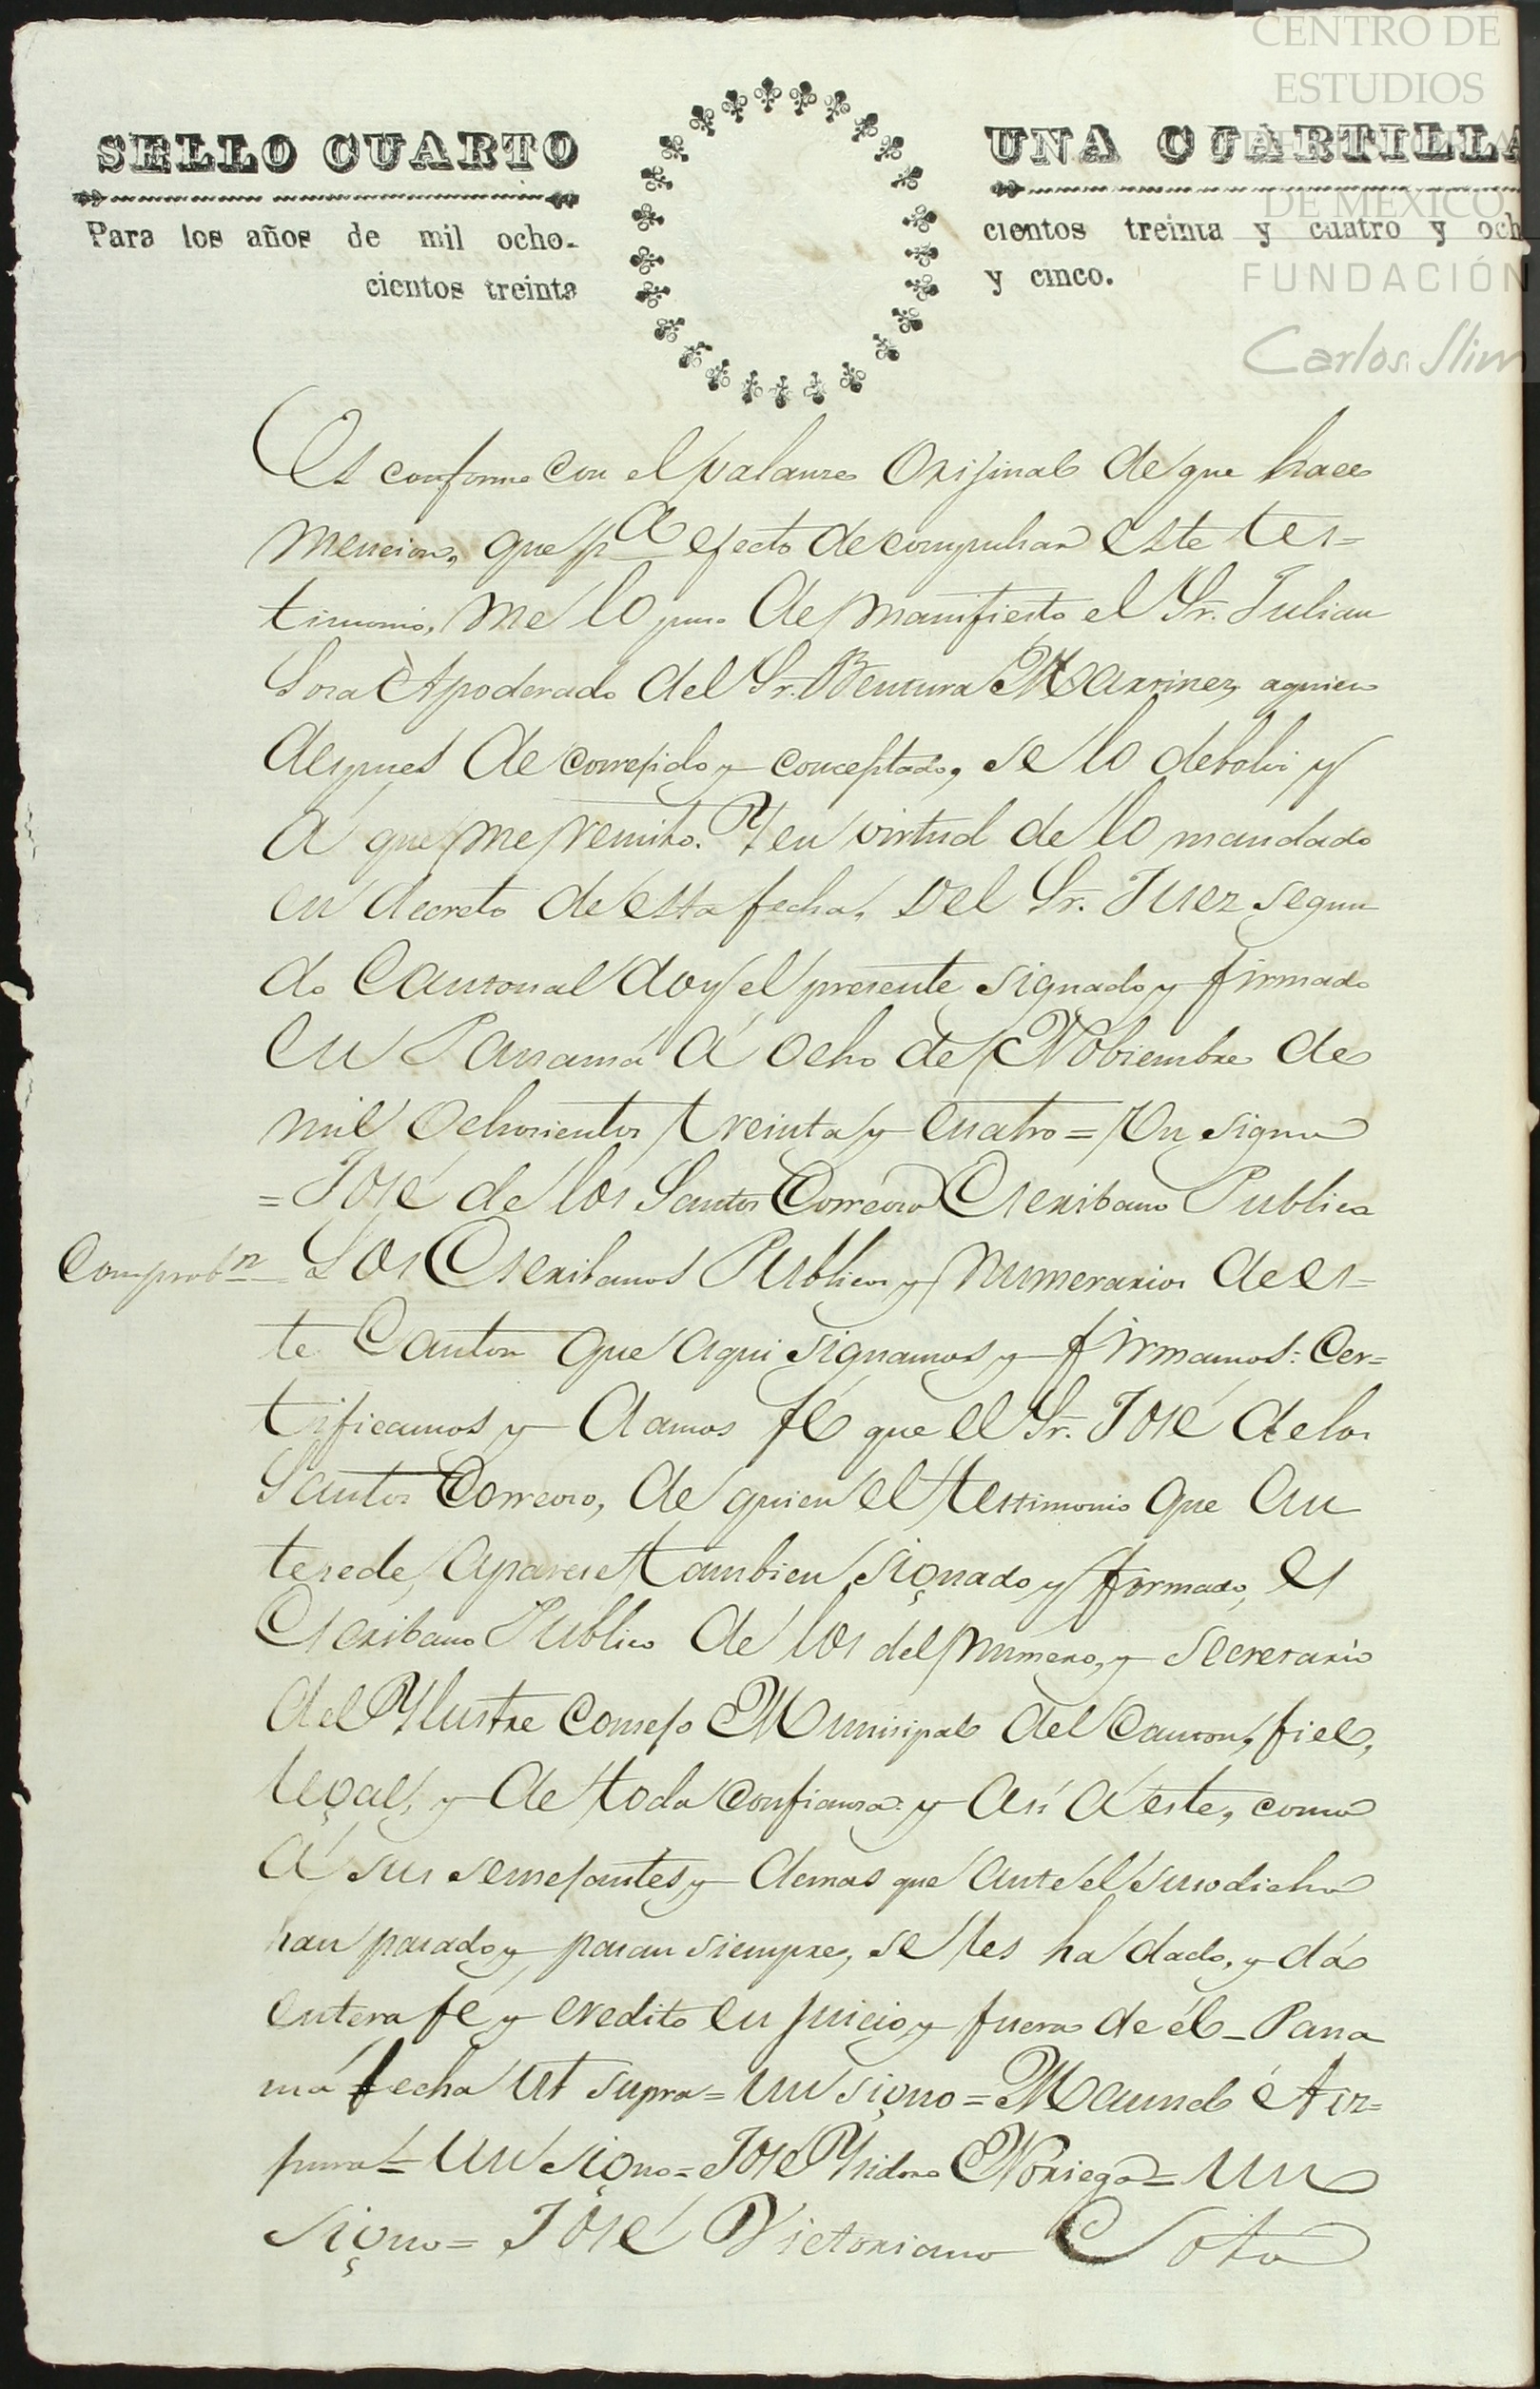 CENTRO DE
ESTUDIOS
DE MÉXICO
FUNDACIÓN
Carlos Slim
SELLO CUARTO
UNA CUARTILLA
Para los años de mil ocho-
cientos treinta
cientos treinta y cuatro y och
y cinco.
Es conforme con el valanze Orijinal de que hace
mencion, que pa efecto de compulsar este tes=
timonio, me lo puso de manifiesto el Sr. Julian
Sosa Apoderado del Sr. Bentura Martinez, aquien
despues de correjido y conceptado, se lo debolvi y
á que me remito. Y en virtud de lo mandado
en decreto de esta fecha, del Sr. Juez segun
do Cantonal doy el presente signado y firmado
en Panamá á ocho de Nobiembre de
mil ochosientos treinta y cuatro = Un signo
= José de los Santos Correoso Escribano Publico
Comprobn = Los Escribanos Publicos y numerarios de es=
te Canton que aqui signamos y firmamos: Cer=
tificamos y damos fé que el Sr. José de los
Santos Correoso, de quien el testimonio que an
tesede, aparese tambien signado y firmado, es
Escribano Publico de los del número, y secretario
del Ylustre Consejo Munisipal del Canton, fiel,
legal, y de toda confianza: y asi á este, como
á sus semejantes y demas que ante el susodicho
han pasado y pasan siempre, se les ha dado, y dá
entera fé y credito en juicio y fuera de él _ Pana
má fecha ut supra = un signo = Manuel
= Un signo = José Ysidoro Noriega = Un
signo = José Victoriano Soto